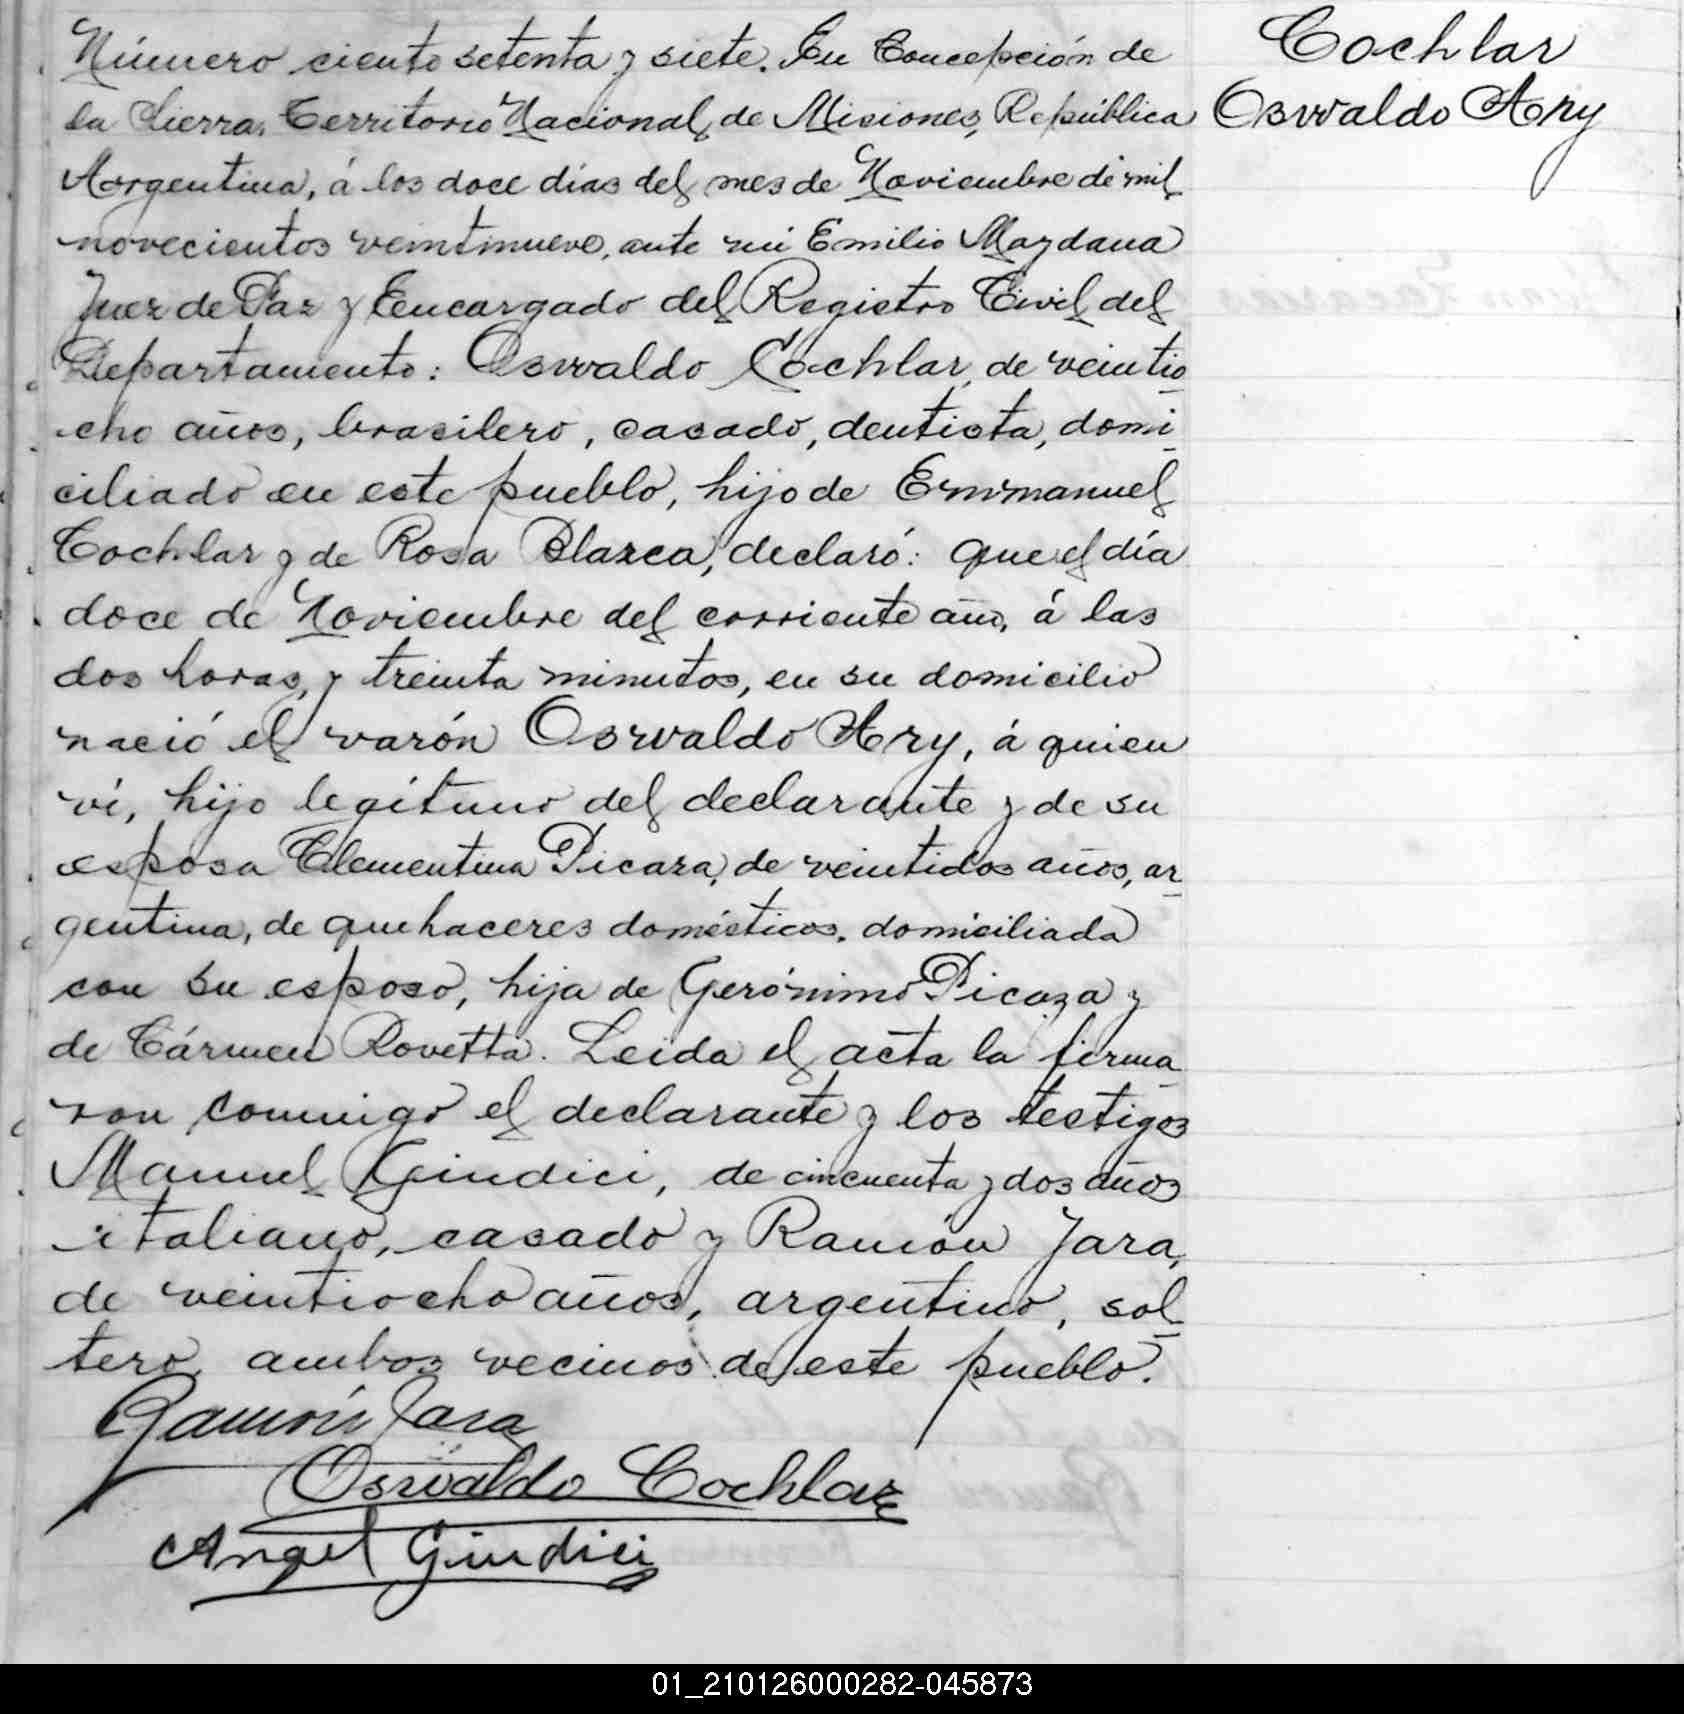 Número ciento setenta y siete. En Concepción de
la Sierra, Territorio Nacional de Misiones, República
Argentina, á los doce días del mes de Noviembre de mil
novecientos veintinueve, ante mi Emilio Maydana
Juez de Paz y Encargado del Registro Civil del
Departamento: Osvvaldo Cochlar, de veintio
cho años, brasilero, casado, dentista, domi
ciliado en este pueblo, hijo de Emmanuel
Cochlar y de Rosa Blazca, declaró: que el día
doce de Noviembre del corriente año, á las
dos horas, y treinta minutos, en su domicilio
nació el varón Osvvaldo Ary, á quien
vi, hijo legítimo del declarante y de su
esposa Clementina Picaza, de veintidos años, ar
gentina, de quehaceres domésticos, domiciliada
con su esposo, hija de Gerónimo Picaza y
de Cármen Rovetta. Leida el acta la firma
ron conmigo el declarante y los testigos
Manuel Giudici, de cincuenta y dos años
italiano, casado y Ramón Jara,
de veintiocho años, argentino, sol
tero, ambos vecinos de este pueblo.
Ramón Jara
Osvvaldo Cochlar
Angel Giudici
Cochlar
Osvvaldo Ary
01_210126000282-045873